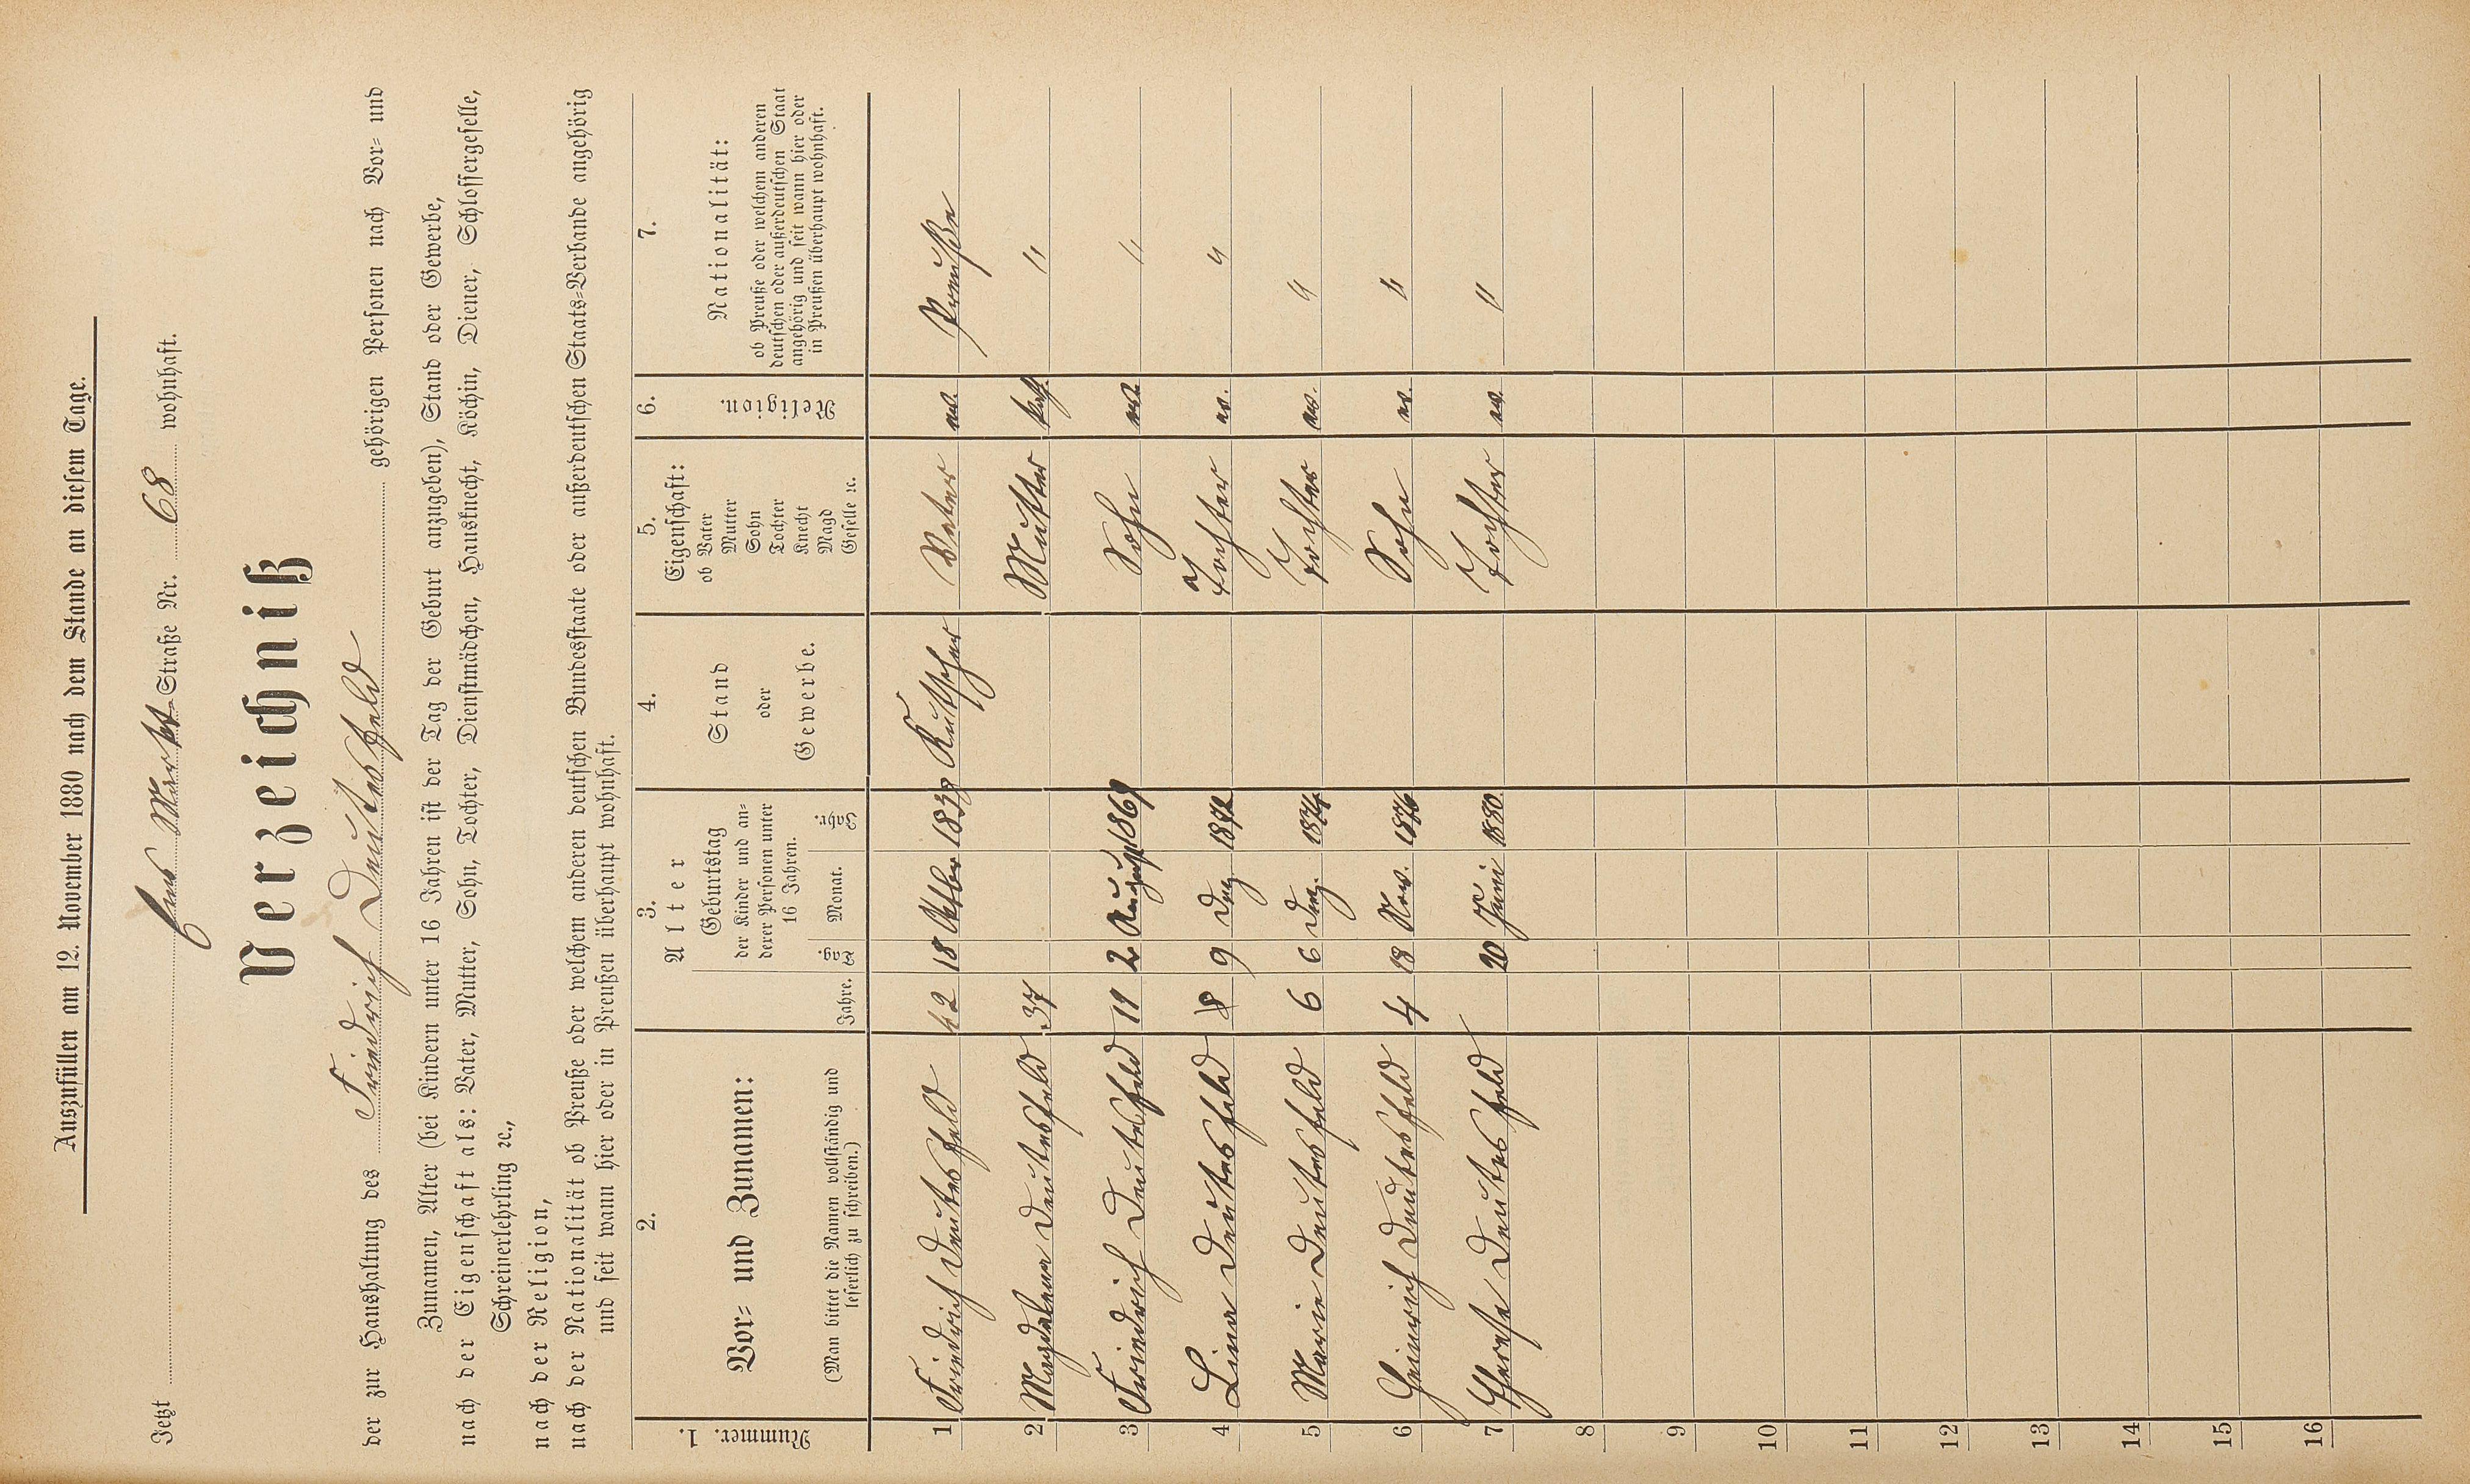 Auszufüllen am 12. November 1880 nach dem Stande an diesem Tage.
Jetzt Markt-Straße Nr. 68 wohnhaft.
Verzeichniß
der zur Haushaltung des Friedrich Deutesfeld gehörigen Personen nach Vor- und
Zunamen, Alter (bei Kindern unter 16 Jahren ist der Tag der Geburt anzugeben), Stand oder Gewerbe,
nach der Eigenschaft als: Vater, Mutter, Sohn, Tochter, Dienstmädchen, Hausknecht, Köchin, Diener, Schlossergeselle,
Schreinerlehrling ꝛc.,
nach der Religion,
nach der Nationalität ob Preuße oder welchem anderen deutschen Bundesstaate oder außerdeutschen Staats-Verbande angehörig
und seit wann hier oder in Preußen überhaupt wohnhaft.
1. Nummer.
2. Vor- und Zunamen:
(Man bittet die Namen vollständig und
leserlich zu schreiben.)
3. Alter
Jahre.
Geburtstag
der Kinder und an-
derer Personen unter
16 Jahren.
Tag Monat. Jahr.
4. Stand
oder
Gewerbe.
5. Eigenschaft:
ob Vater
Mutter
Sohn
Tochter
Knecht
Magd
Geselle ꝛc.
6. Religion.
7. Nationalität:
ob Preuße oder welchem anderen
deutschen oder außerdeutschen Staat
angehörig und seit wann hier oder
in Preußen überhaupt wohnhaft.
1 Friedrich Deutesfeld 42 18 Oktbr 1838 Kutscher Vater ev. Preuße
2 Magdalena Deutesfeld 37 Mutter kath. "
3 Friedrich Deutesfeld 11 2 August 1869 Sohn ev. "
4 Lina Deutesfeld 8 9 Dez 1872 Tochter ev. "
5 Marie Deutesfeld 6 6 Dez. 1874 Tochter ev. "
6 Heinrich Deutesfeld 4 18 Nov. 1876 Sohn ev. "
7 Therese Deutesfeld 20 Juni 1880. Tochter ev. "
8
9
10
11
12
13
14
15
16